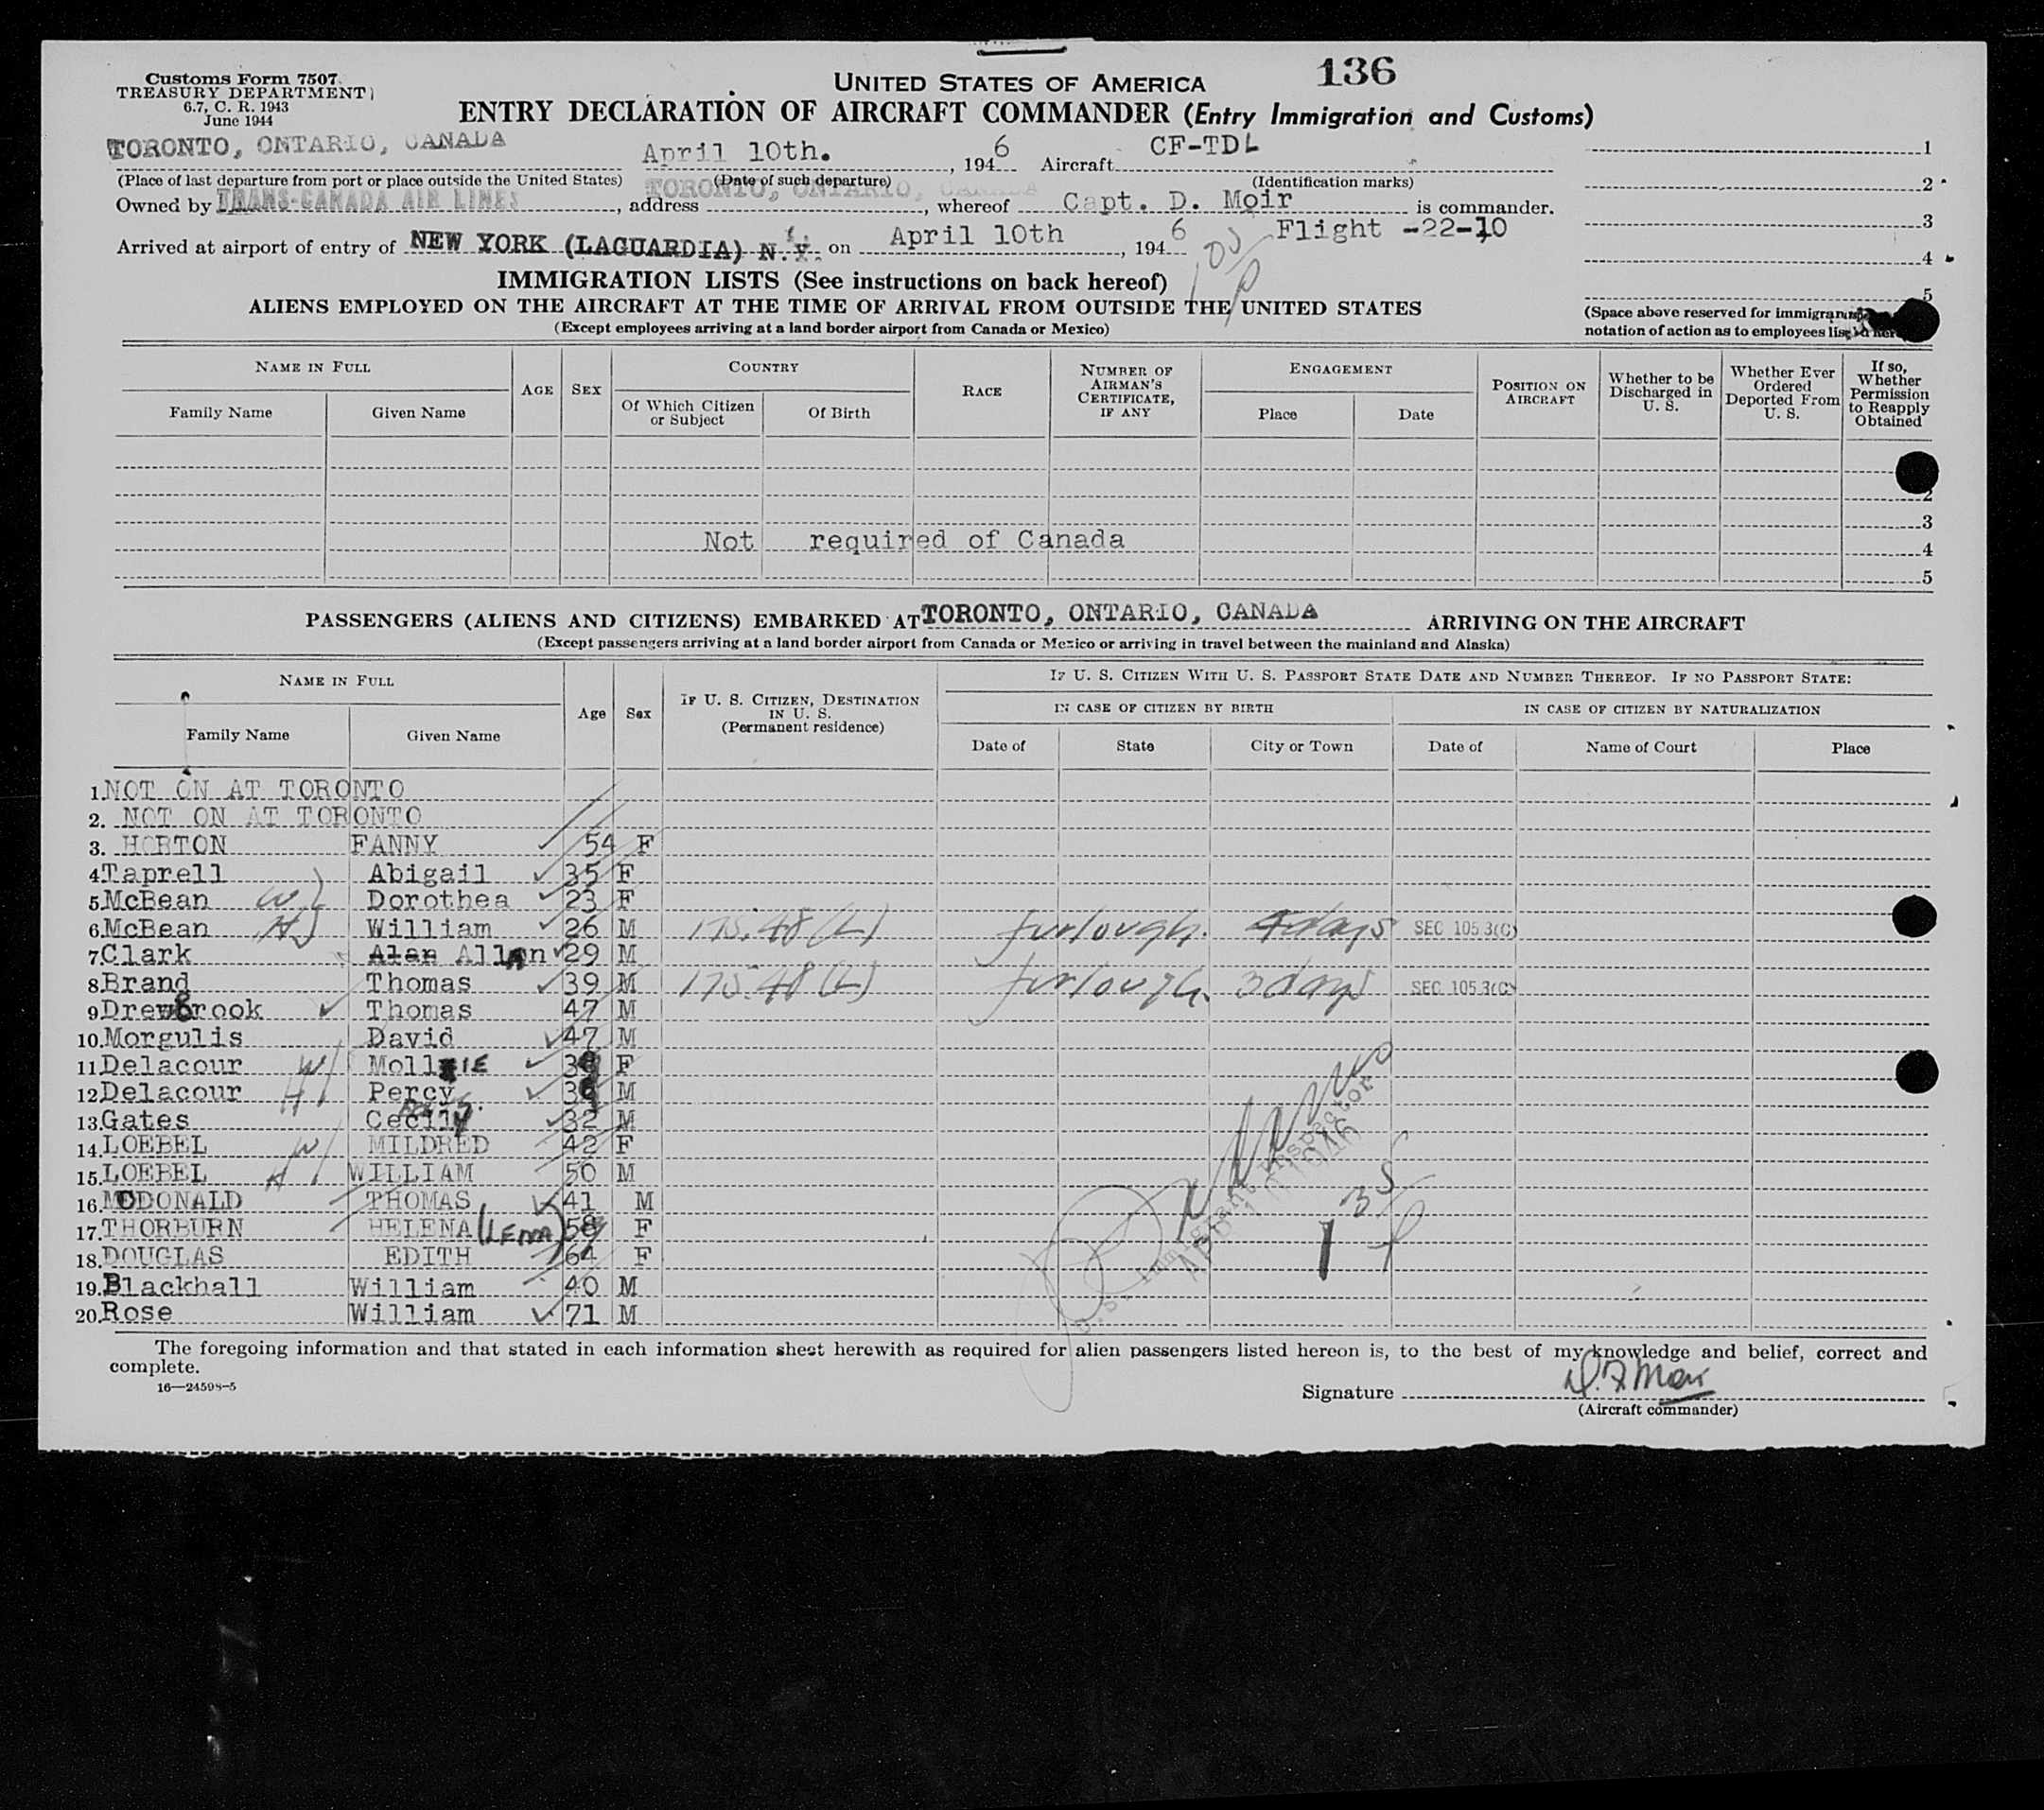 136
Customs Form 7507
TREASURY DEPARTMENT
6.7, C. R. 1943
June 1944
UNITED STATES OF AMERICA
ENTRY DECLARATION OF AIRCRAFT COMMANDER (Entry Immigration and Customs)
TORONTO, ONTARIO, CANADA April 10th. , 1946 Aircraft CF-TDL
(Place of last departure from port or place outside the United States) (Date of such departure) (Identification marks)
Owned by TRANS-CANADA AIR LINES , address TORONTO, ONTARIO, CANADA , whereof Capt. D. Moir is commander.
Arrived at airport of entry of NEW YORK (LAGUARDIA) N.Y. on April 10th , 1946 Flight -22-10
1
2
3
4
5
(Space above reserved for immigrant
notation of action as to employees listed
IMMIGRATION LISTS (See instructions on back hereof)
ALIENS EMPLOYED ON THE AIRCRAFT AT THE TIME OF ARRIVAL FROM OUTSIDE THE UNITED STATES
(Except employees arriving at a land border airport from Canada or Mexico)
NAME IN FULL
Family Name Given Name
AGE SEX
COUNTRY
Of Which Citizen or Subject Of Birth
RACE
NUMBER OF AIRMAN'S CERTIFICATE, IF ANY
ENGAGEMENT
Place Date
POSITION ON AIRCRAFT
Whether to be Discharged in U. S.
Whether Ever Ordered Deported From U. S.
If so, Whether Permission to Reapply Obtained
2
3
Not required of Canada 4
5
PASSENGERS (ALIENS AND CITIZENS) EMBARKED AT TORONTO, ONTARIO, CANADA ARRIVING ON THE AIRCRAFT
(Except passengers arriving at a land border airport from Canada or Mexico or arriving in travel between the mainland and Alaska)
NAME IN FULL
Family Name Given Name
Age Sex
IF U. S. CITIZEN, DESTINATION IN U. S. (Permanent residence)
IF U. S. CITIZEN WITH U. S. PASSPORT STATE DATE AND NUMBER THEREOF. IF NO PASSPORT STATE:
IN CASE OF CITIZEN BY BIRTH IN CASE OF CITIZEN BY NATURALIZATION
Date of State City or Town Date of Name of Court Place
1. NOT ON AT TORONTO
2. NOT ON AT TORONTO
3. HORTON FANNY 54 F
4. Taprell Abigail 35 F
5. McBean W Dorothea 23 F
6. McBean H William 26 M 175.48 (L) furlough. 4 days SEC 105.3(C)
7. Clark Alan Allan 29 M
8. Brand Thomas 39 M 175.48 (L) furlough. 3 days SEC 105.3(C)
9. Drewbrook Thomas 47 M
10. Morgulis David 47 M
11. Delacour W MollIE 39 F
12. Delacour H Percy 39 M
13. Gates Cecil 32 M
14. LOEBEL W MILDRED 42 F
15. LOEBEL H WILLIAM 50 M
16. MCDONALD THOMAS 41 M
17. THORBURN HELENA (LENA) 58 F
18. DOUGLAS EDITH 64 F
19. Blackhall William 40 M
20. Rose William 71 M
U.S. Immigrant Inspector
APR 10 1946
The foregoing information and that stated in each information sheet herewith as required for alien passengers listed hereon is, to the best of my knowledge and belief, correct and
complete.
16—24598-5
Signature D. F Moir
(Aircraft commander)